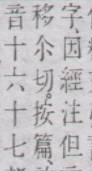 字因經注但
移尒切按篇
音十六十七